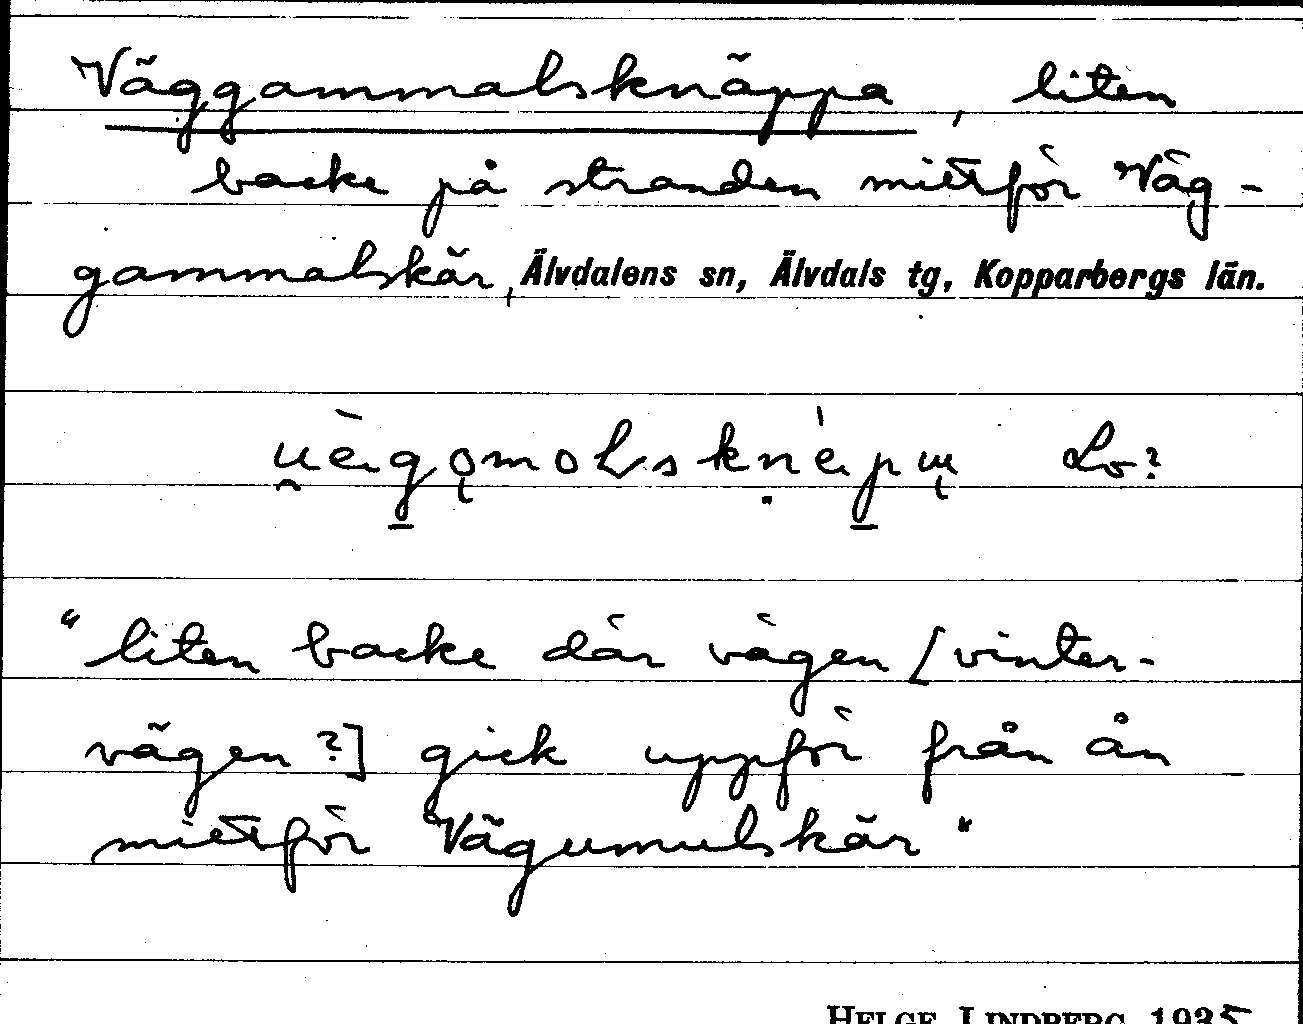 Väggammalsknäppa, liten
backe på stranden mittför Väg-
gammalskär, Älvdalens sn, Älvdals tg, Kopparbergs län.
Lo?
"liten backe där vägen [vinter-
vägen?] gick uppför från ån
mittför Vägumulskär"
HELGE LINDBERG 1935